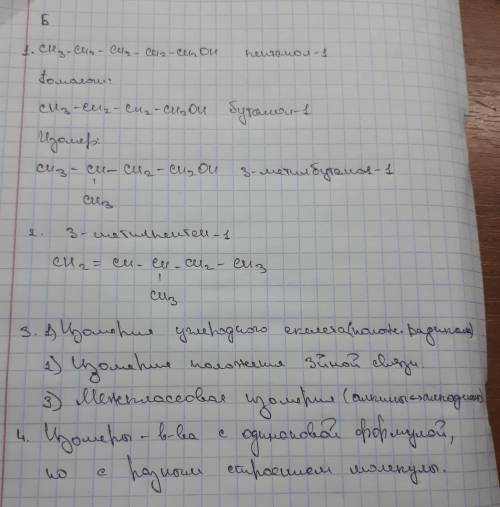 Б
1. CH3-CH2-CH2-CH2-CH2OH пентанол-1
Гомолог:
CH3-CH2-CH2-CH2OH бутанол-1
Изомер:
CH3-CH-CH2-CH2OH 3-метилбутанол-1
CH3
2. 3-метилпентен-1
CH2=CH-CH-CH2-CH3
CH3
3. 1) Изомерия углеродного скелета (полож. радикала)
2) Изомерия положения 3йной связи.
3) Межклассовая изомерия (алкины
4. Изомеры - в-ва с одинаковой формулой,
но с разным строением молекулы.